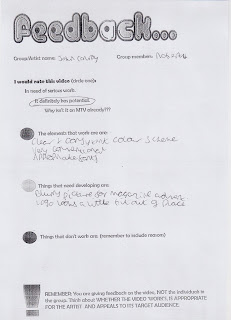 Feedback...
Group/Artist name: Group members:
I would rate this video (circle one):
In need of serious work.
It definitely has potential.
Why isn't it on MTV already???
The elements that work are are:
clear & consistent colour scheme
very conventional
Appropriate
Things that need developing are:
picture for magazine advert
logo looks a little bit out of place
Things that don't work are: (remember to include reasons)
REMEMBER: You are giving feedback on the video, NOT the individuals in
the group. Think about WHETHER THE VIDEO 'WORKS', IS APPROPRIATE
FOR THE ARTIST AND APPEALS TO ITS TARGET AUDIENCE.